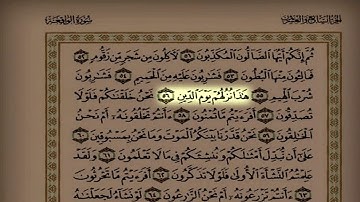 سُورَةُ الواقِعَة الجزء السابع والعشرون
ثُمَّ إِنَّكُمْ أَيُّهَا ٱلضَّآلُّونَ ٱلْمُكَذِّبُونَ ٥١ لَءَاكِلُونَ مِن شَجَرٍ مِّن زَقُّومٍ ٥٢
فَمَالِـُٔونَ مِنْهَا ٱلْبُطُونَ ٥٣ فَشَٰرِبُونَ عَلَيْهِ مِنَ ٱلْحَمِيمِ ٥٤ فَشَٰرِبُونَ
شُرْبَ ٱلْهِيمِ ٥٥ هَٰذَا نُزُلُهُمْ يَوْمَ ٱلدِّينِ ٥٦ نَحْنُ خَلَقْنَٰكُمْ فَلَوْلَا
تُصَدِّقُونَ ٥٧ أَفَرَءَيْتُم مَّا تُمْنُونَ ٥٨ ءَأَنتُمْ تَخْلُقُونَهُۥٓ أَمْ نَحْنُ
ٱلْخَٰلِقُونَ ٥٩ نَحْنُ قَدَّرْنَا بَيْنَكُمُ ٱلْمَوْتَ وَمَا نَحْنُ بِمَسْبُوقِينَ ٦٠
عَلَىٰٓ أَن نُّبَدِّلَ أَمْثَٰلَكُمْ وَنُنشِئَكُمْ فِى مَا لَا تَعْلَمُونَ ٦١ وَلَقَدْ
عَلِمْتُمُ ٱلنَّشْأَةَ ٱلْأُولَىٰ فَلَوْلَا تَذَكَّرُونَ ٦٢ أَفَرَءَيْتُم مَّا تَحْرُثُونَ
٦٣ ءَأَنتُمْ تَزْرَعُونَهُۥٓ أَمْ نَحْنُ ٱلزَّٰرِعُونَ ٦٤ لَوْ نَشَآءُ لَجَعَلْنَٰهُ